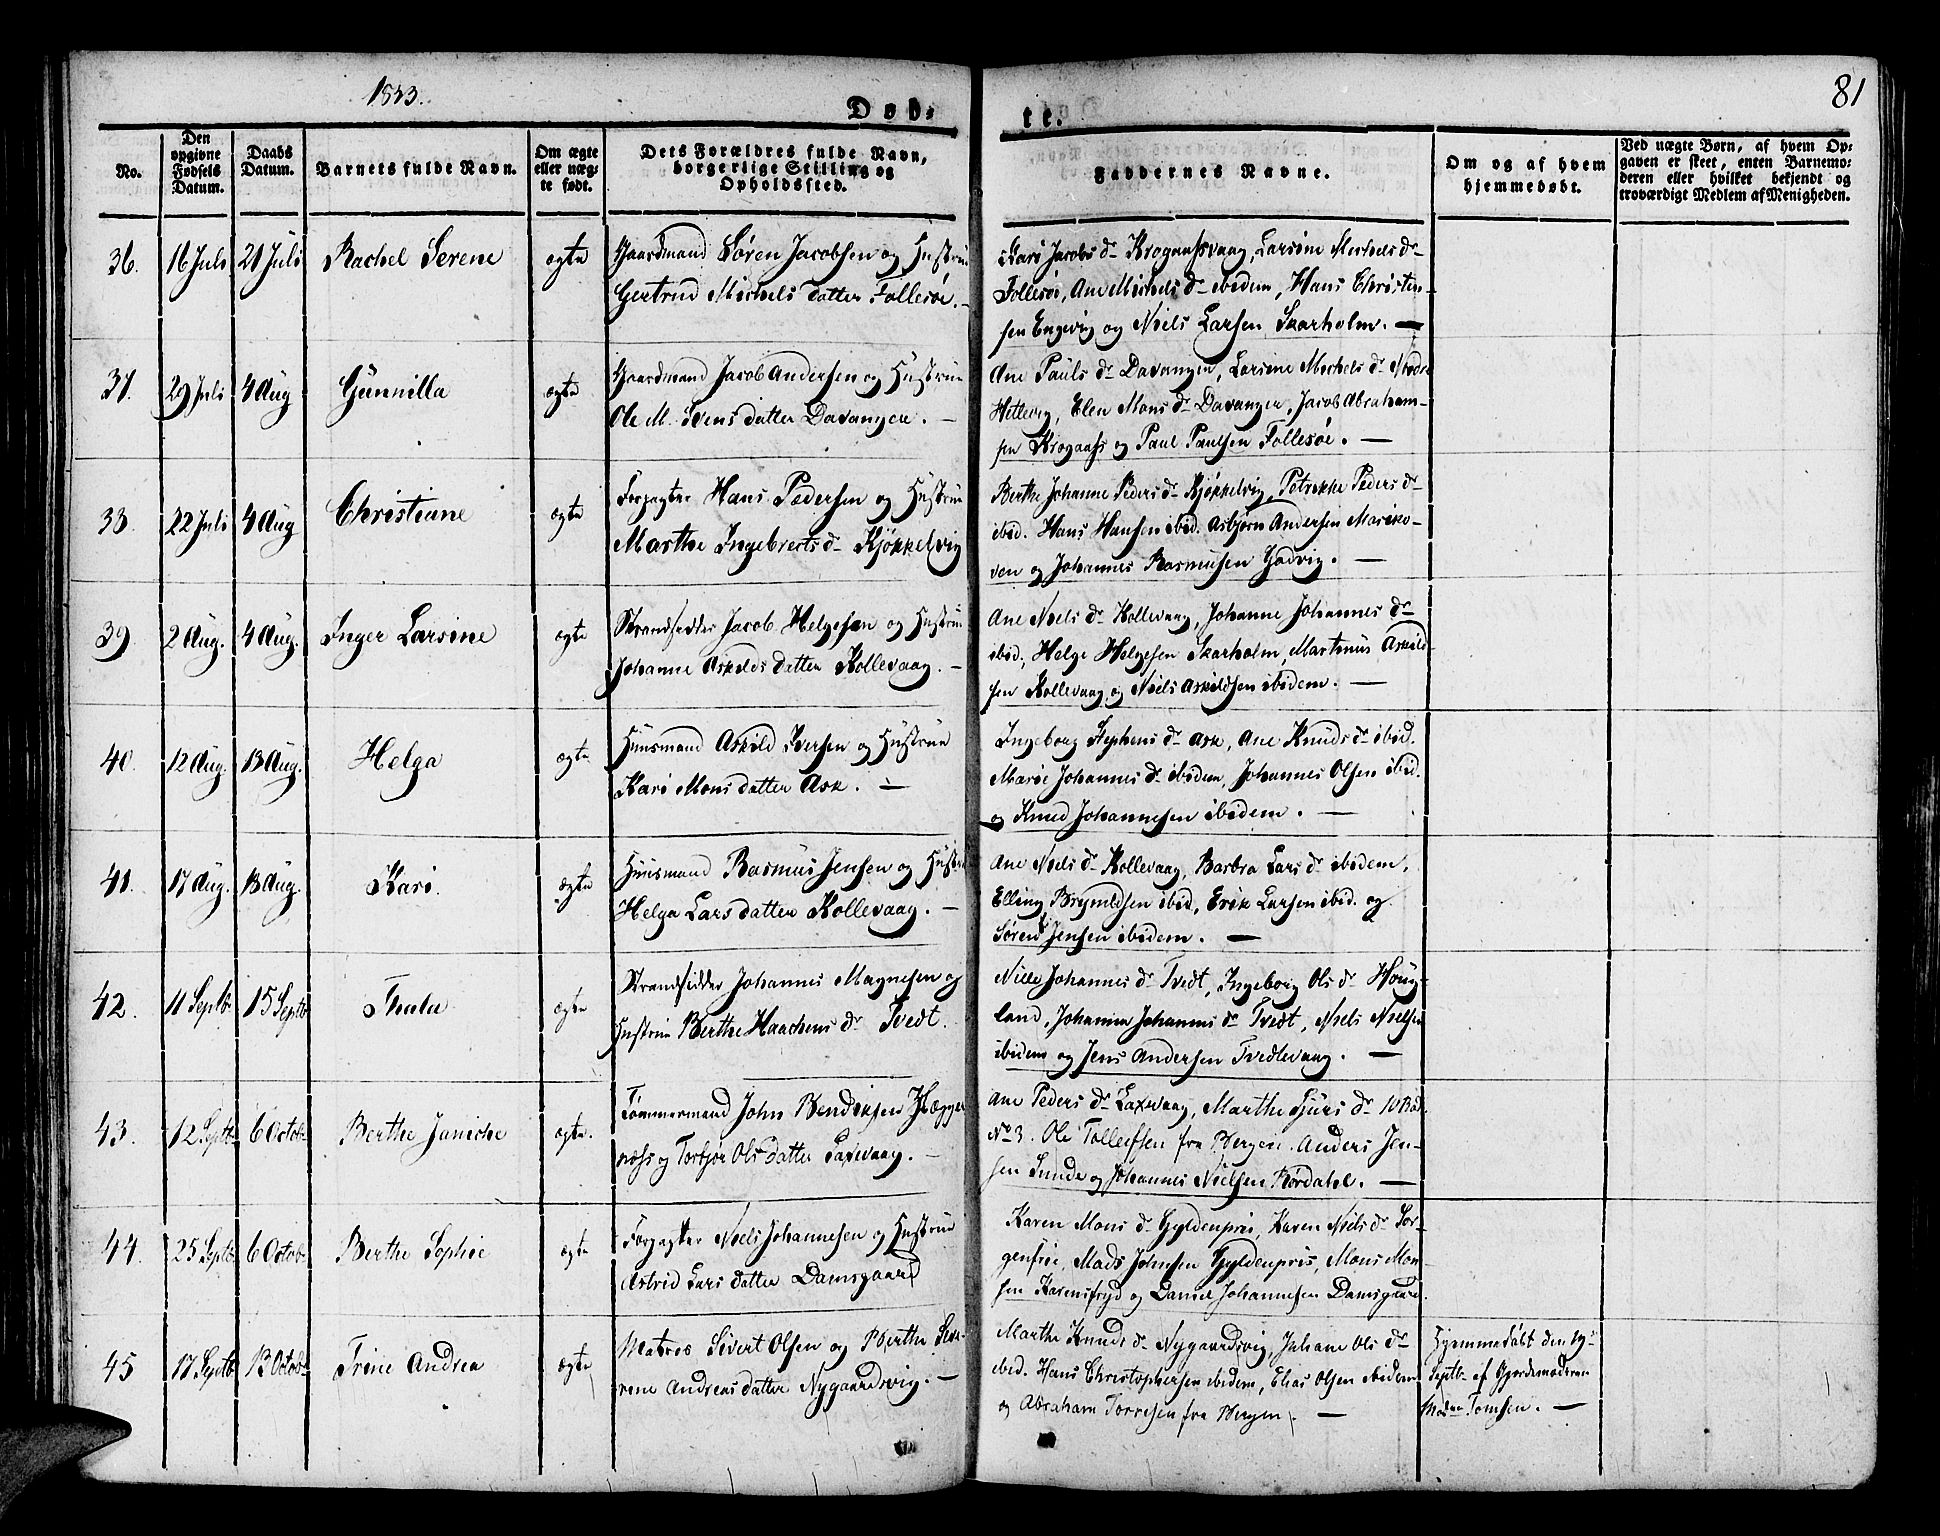 1833.
81
Døb-
te.
No.
Den opgivne Fødsels Datum.
Daabs Datum.
Barnets fulde Navn.
Om ægte eller uægte født.
Dets Forældres fulde Navn, borgerlige Stilling og Opholdssted.
Faddernes Navne.
Om og af hvem hjemmedøbt.
Ved uægte Børn, af hvem Opgaven er skeet, enten Barnemoderen eller hvilket bekjendt og troværdigt Medlem af Menigheden.
36. 16 Juli 21 Juli Rachel Serene ægte
Gaardmand Søren Jacobsen og Hustrue
Gertrud Michels datter Follesøe. —
Kari Jacobs dr Krogaasvaag, Larsine Michels dr
Follesøe, Ane Michels dr ibidem, Hans Christen-
sen Engevig og Niels Larsen Skarholm. —
37. 29 Juli 4 Aug Gunnilla ægte
Gaardmand Jacob Andersen og Hustrue
Ole M. Svens datter Davanger. —
Ane Pauls dr Davanger, Larsine Michels dr Nedre
Hettevig, Elen Mons dr Davanger, Jacob Abraham-
sen Krogaas og Paul Paulsen Follesøe. —
38. 22 Juli 4 Aug Christiane ægte
Forpagter Hans Pedersen og Hustrue
Marthe Ingebrets dr Kjøkkelvig
Berthe Johanne Peders dr Kjøkkelvig, Petrikke Peders dr
ibid. Hans Hansen ibid. Asbjørn Andersen Mariko-
ven og Johannes Rasmusen Godvig. —
39. 2 Aug. 4 Aug. Inger Larsine ægte
Strandsidder Jacob Helgesen og Hustrue
Johanne Askilds datter Kollevaag. —
Ane Niels dr Kollevaag, Johanne Johannes dr
ibid, Helge Helgesen Skarholm, Martinus Askild-
sen Kollevaag og Niels Askildsen ibidem. —
40. 12 Aug. 13 Aug. Helga ægte
Huusmand Askild Iversen og Hustrue
Kari Mons datter Ask. —
Ingeborg Stephens dr Ask, Ane Knuds dr ibid.
Marie Johannes dr ibidem, Johannes Olsen ibid.
og Knud Johannesen ibidem. —
41. 17 Aug. 18 Aug. Kari. ægte
Huusmand Rasmus Jensen og Hustr
Helga Lars datter Kollevaag. —
Ane Niels dr Kollevaag, Barbra Lars dr ibidem,
Elling Brynildsen ibid, Erik Larsen ibid. og
Søren Jensen ibidem. —
42. 11 Septb 15 Septb Thala ægte
Strandsidder Johannes Magnesen og
Hustrue Berthe Haachens dr Tvedt.
Nille Johannes dr Tvedt, Ingeborg Ols dr Houg-
land, Johanna Johannes dr Tvedt, Niels Nielsen
ibidem og Jens Andersen Tvedtevaag. —
43. 12 Septb 6 Octob Berthe Janiche ægte.
Tømmermand John Bendixsen Hægger
næss og Torbjør Ols datter Laxevaag. —
Ane Peders dr Laxevaag, Marthe Siurs dr 10 Rod.
No 3. Ole Tollefsen fra Bergen. Anders Jen-
sen Sunde og Johannes Nielsen Børdahl. —
44. 25 Septb 6 Octob Berthe Sophie ægte
Forpagter Niels Johannesen og Hustrue
Astrid Lars datter Damsgaard
Karen Mons dr Gyldenpris, Karen Niels dr Sor-
genfrie, Mads Johnsen Gyldenpris, Mons Mon-
sen Karensfryd og Daniel Johannesen Damsgaard.
45 17 Septb 13 Octob Trine Andrea ægte
Matros Sivert Olsen og Berthe Seve-
rine Andreas datter Nygaardsvig. —
Marthe Knuds dr Nygaardsvig, Johane Ols dr
ibid. Hans Christophersen ibidem, Elias Olsen ibidem
og Abraham Torresen fra Bergen. —
Hjemmedøbt den 19de
Septb. af Gjordemoderen
Madme Tomsen. —